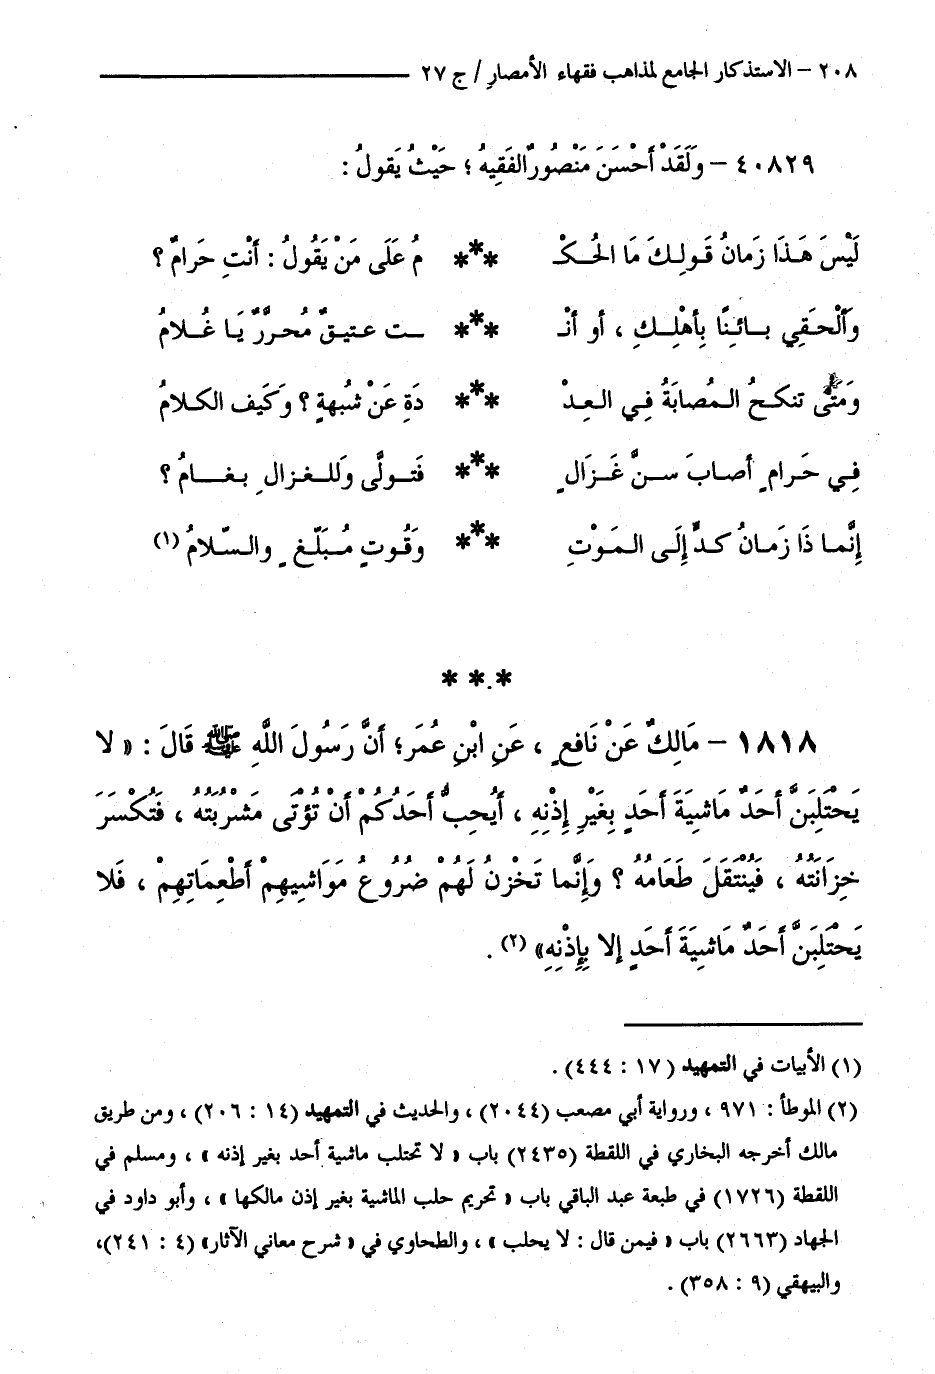 ٢٠٨ – الاستذكار الجامع لمذاهب فقهاء الأمصار / ج ٢٧
٤٠٨٢٩ – وَلَقَدْ أَحْسَنَ مَنْصُورٌ الفَقِيهُ ؛ حَيْثُ يَقولُ :
لَيْسَ هَذَا زَمانُ قَولِكَ مَا الحُكْـ *** مُ عَلَى مَنْ يَقُولُ : أَنْتِ حَرامٌ ؟
وَأَلْحَقِي بائِنًا بِأَهْلِكِ ، أو أنْـ *** ـت عتيقٌ مُحرَّرٌ يَا غُلامُ
وَمَتَى تنكحُ المُصابَةُ فِي العِدْ *** دَةِ عَنْ شُبهةٍ ؟ وَكَيف الكلامُ
فِي حَرامٍ أصابَ سنَّ غَزَالٍ *** فَتولَّى وَللغزالِ بغامُ ؟
إنَّما ذَا زَمانُ كدٍّ إِلَى المَوْتِ *** وَقُوتٍ مُبَلّغٍ والسّلامُ (١)
* * *
١٨١٨ – مَالِكٌ عَنْ نَافعٍ ، عَنِ ابْنِ عُمَرَ؛ أَنَّ رَسُولَ اللَّهِ ﷺ قَالَ : « لا
يَحْتَلِبَنَّ أَحَدٌ مَاشيَةَ أَحَدٍ بِغَيْرِ إِذْنِهِ ، أَيُحِبُّ أَحَدُكُمْ أَنْ تُؤْتَى مَشْرَبَتُهُ ، فَتُكْسَرَ
خِزَانَتُهُ ، فَيُنْتَقَلَ طَعَامُهُ ؟ وَإِنَّما تَخْزنُ لَهُمْ ضُرُوعُ مَوَاشِيهِمْ أَطْعِمَاتِهِمْ ، فَلا
يَحْتَلِبَنَّ أَحَدٌ مَاشيَةَ أَحَدٍ إلا بِإِذْنِهِ» (٢) .
(١) الأبيات في التمهيد (١٧ : ٤٤٤) .
(٢) الموطأ : ٩٧١ ، ورواية أبي مصعب (٢٠٤٤) ، والحديث في التمهيد (١٤ : ٢٠٦) ، ومن طريق
مالك أخرجه البخاري في اللقطة (٢٤٣٥) باب « لا تحتلب ماشية أحد بغير إذنه » ، ومسلم في
اللقطة (١٧٢٦) في طبعة عبد الباقي باب « تحريم حلب الماشية بغير إذن مالكها » ، وأبو داود في
الجهاد (٢٦٦٣) باب « فيمن قال : لا يحلب » ، والطحاوي في « شرح معاني الآثار» (٤ : ٢٤١)،
والبيهقي (٩ : ٣٥٨) .